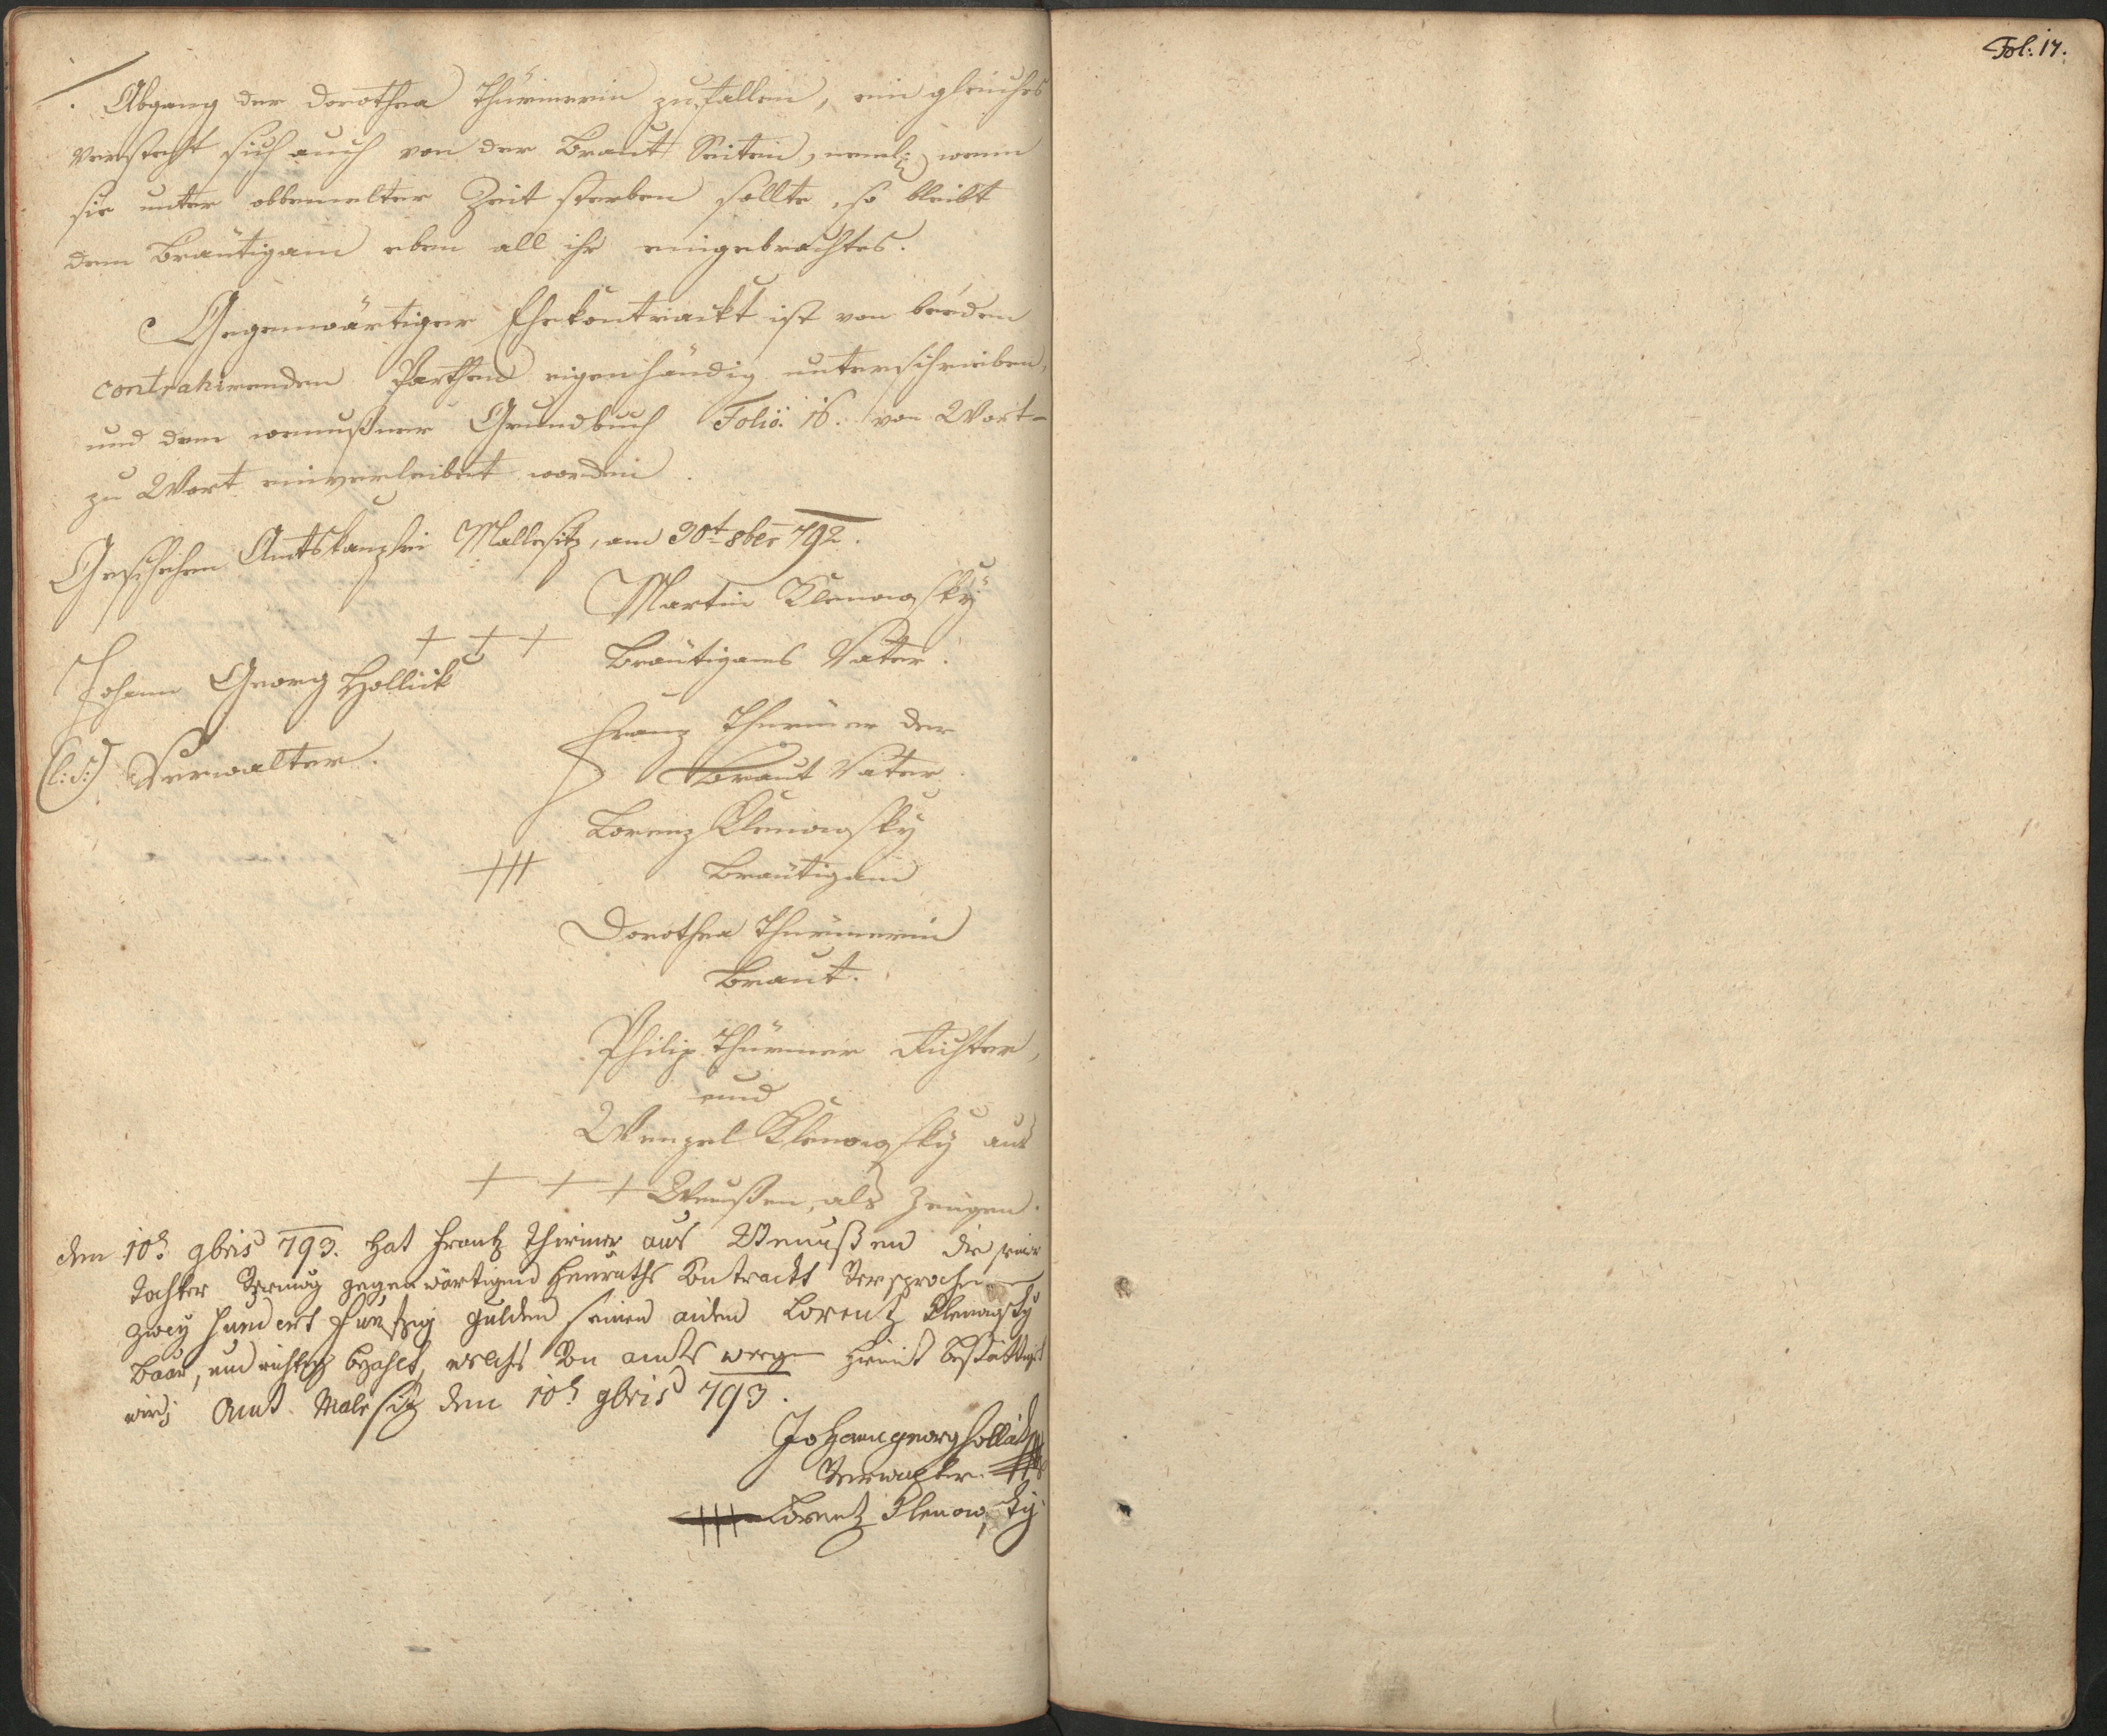 Abgang der Dorothea Thürmerin zufallen, ein gleiches
verstehet sich auch von der Braut Seiten, neml: wenn
sie unter obbemelter Zeit sterben sollte, so bleibt
dem Bräutigam eben all ihr eingebrachtes.
Gegenwärtiger Ehekontrackt ist von beeden
contrahirenden Parthen eigenhändig unterschrieben,
und dem wenußner Grundbuch Folio: 16. von Wort-
zu Wort einverleibet worden.
Geschehen Amtskanzlei Mallesitz, am 30t 8ber 792.
Martin Klenowsky
+ + +
Bräutigams Vater.
Johann Georg Hollick
(l:s:) Verwalter.
Franz Thürmer der
Braut Vater.
Lorenz Klenowsky
+++ Bräutigam
Dorothea Thürmerin
Braut.
Philip Thürmer Richter,
und
Wenzel Klenowsky aus
+ + + Wenußen, als Zeugen.
den 10t 9bris 793. hat Frantz Thirmer aus Wenußen die seiner
Tochter Vermög gegenwärtigen Heuraths Contrackt Versprochene
zwey hundert Funfzig Gulden seinen aiden Lorentz Klenowsky
baar, und richtig bezahlt, welches Von amts wegen hiemit bestättiget
wird; Amt Malesitz den 10t 9bris 793.
Johann georg Hollick
Verwalter.
+++ Lorentz Klenowsky
Fol: 17.